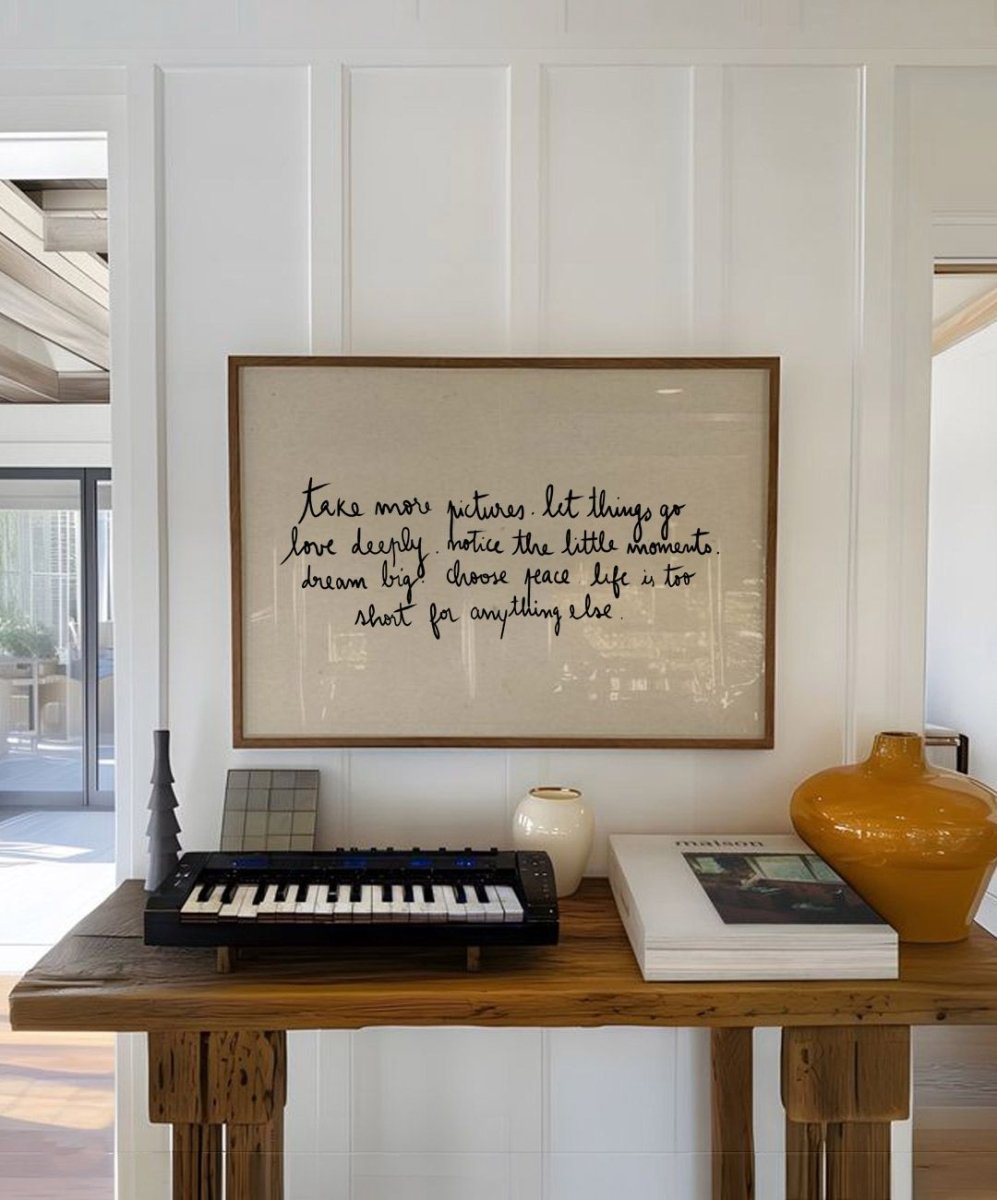 take more pictures. let things go
love deeply. notice the little moments.
dream big. choose peace. life is too
short for anything else.
maison